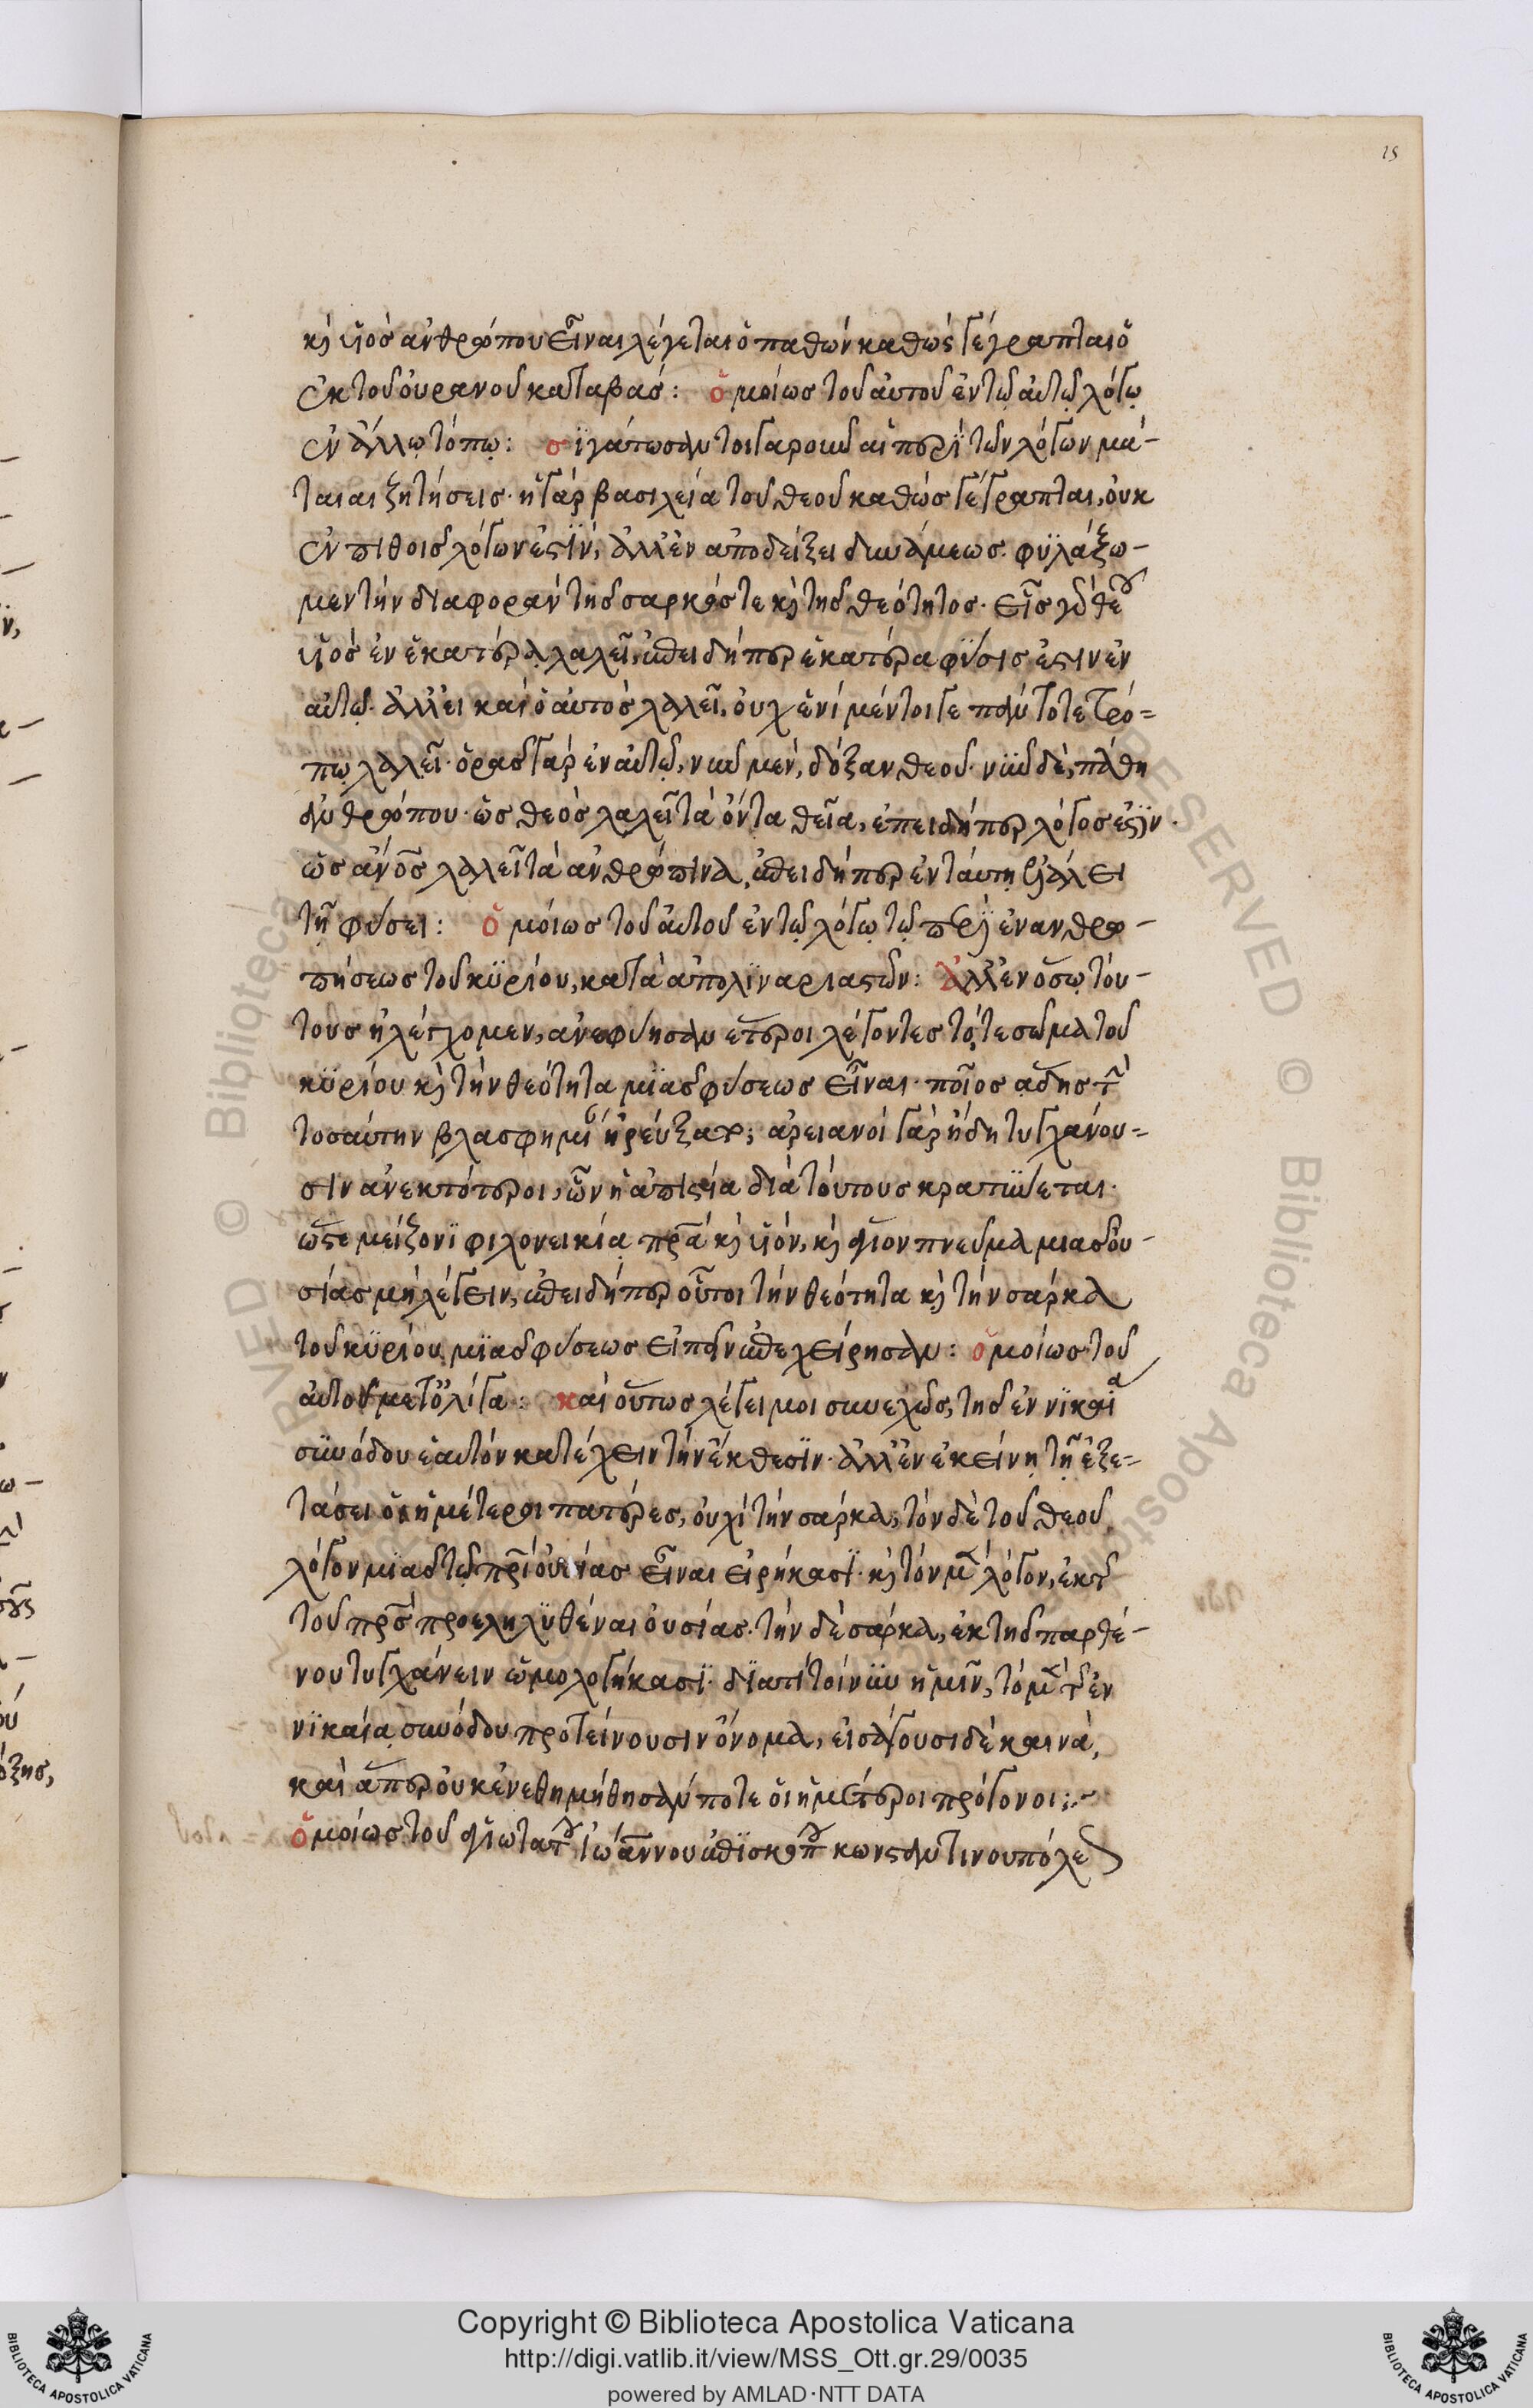 15
κ(αὶ) υἱὸς ἀνθρώπου εἶναι λέγεται ὁ παθὼν καθὼς γέγραπται ὁ
ἐκ τοῦ οὐρανοῦ καταβάς: ὁμοίως τοῦ αὐτοῦ ἐν τῷ αὐτῷ λόγῳ
ἐν ἄλλῳ τόπῳ: σϊγάτωσαν τοιγαροῦν αἱ περὶ τῶν λόγων μά-
ταιαι ζητήσεις· ἡ γὰρ βασιλεία τοῦ θεοῦ καθὼς γέγραπται, οὐκ
ἐν πιθοῖς λόγων ἐστϊν, ἀλλ' ἐν ἀποδείξει δυνάμεως. φϋλάξω-
μεν τὴν διαφορὰν τῆς σαρκός τε κ(αὶ) τῆς θεότητος· εἷς γὰρ θεοῦ
υἱὸς ἐν ἑκατέρᾳ λαλεῖ, ἐπειδήπερ ἑκατέρα φϋσις ἐστὶν ἐν
αὐτῷ· ἀλλ' εἰ καὶ ὁ αὐτὸς λαλεῖ, οὐχ ἑνὶ μέντοιγε πάντοτε τρό=
πῳ λαλεῖ· ὅρα γὰρ ἐν αὐτῷ, νῦν μὲν, δόξαν θεοῦ· νῦν δὲ, πάθη
ἀνθρώπου· ὡς θεὸς λαλεῖ τὰ ὄντα θεῖα, ἐπειδήπερ λόγος ἐστϊν·
ὡς ἄνος λαλεῖ τὰ ἀνθρώπινα, ἐπειδήπερ ἐν ταύτῃ ἐλάλει
τῇ φύσει: ὁμοίως τοῦ αὐτοῦ ἐν τῷ λόγῳ τῷ περὶ ἐνανθρω-
πήσεως τοῦ κϋρίου, κατὰ ἀπολϊναριαστῶν: ἀλλ' ἐν ὅσῳ τού-
τους ἠλέγχομεν, ἀνεφύησαν ἕτεροι λέγοντες τό, τε σῶμα τοῦ
κϋρίου κ(αὶ) τὴν θεότητα μϊᾶς φύσεως εἶναι· ποῖος ᾅδης τ(ὴν)
τοσαύτην βλασφημί(αν) ἠρεύξατο; ἀρειανοὶ γὰρ ἤδη τυγχάνου=
σιν ἀνεκτότεροι, ὧν ἡ ἀπιστία διὰ τούτους κρατύνεται·
ὥστε μείζονϊ φιλονεικίᾳ πρα κ(αὶ) υἱόν, κ(αὶ) ἅγιον πνεῦμα μιᾶς οὐ-
σίας μὴ λέγειν, ἐπειδήπερ οὗτοι τὴν θεότητα κ(αὶ) τὴν σάρκα
τοῦ κϋρίου, μϊᾶς φύσεως εἰπεῖν ἐπεχείρησαν: ὁμοίως τοῦ
αὐτοῦ μετ' ὀλίγα: καὶ οὕτως λέγει μοι συνεχῶς, τῆς ἐν νϊκαία
συνόδου ἑαυτὸν κατέχειν τὴν ἔκθεσϊν· ἀλλ' ἐν ἐκείνῃ τῇ ἐξε=
τάσει οἱ ἡμέτεροι πατέρες, οὐχὶ τὴν σάρκα, τὸν δὲ τοῦ θεοῦ
λόγον μιᾶς τῷ πρὶ οὐσίας εἶναι εἰρήκασϊ· κ(αὶ) τὸν μ(ὲν) λόγον, ἐκ τ(ῆς)
τοῦ πρς προεληλϋθέναι οὐσίας· τὴν δὲ σάρκα, ἐκ τῆς παρθέ-
νου τυγχάνειν ὡμολογήκασϊ· δϊατί τοίνϋν ἡμῖν, τὸ μ(ὲν) τ(ῆς) ἐν
νϊκαίᾳ συνόδου προτείνουσιν ὄνομα, εἰσάγουσι δὲ καινά,
καὶ ἅπερ οὐκ ἐνεθημήθησάν ποτε οἱ ἡμέτεροι πρόγονοι:
ὁμοίως τοῦ ἁγιωτάτ(ου) ἰωάννου ἐπϊσκόπ(ου) κωνσταντινουπόλε(ως)